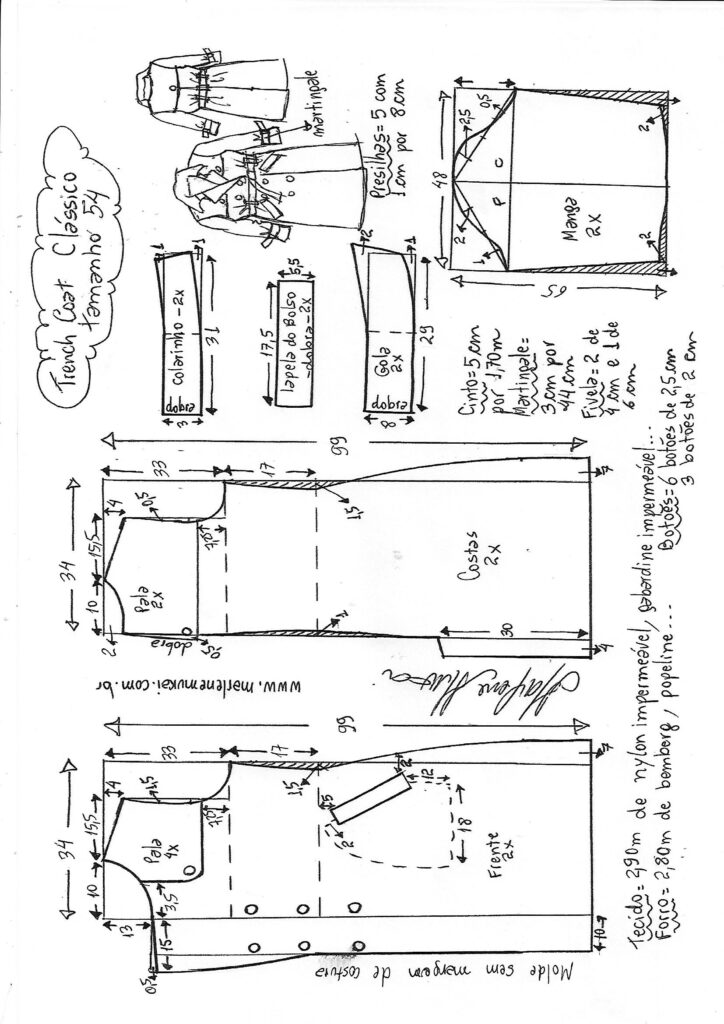 Trench Coat Clássico
tamanho 54
martingale
Presilhas = 5 com
1 cm por
8 cm
colarinho - 2x
dobra
1
1
3
31
17,5
5,5
lapela do Bolso
- dobra - 2x
Gola
2x
dobra
2
1
8
29
48
65
2,5
0,5
2
1
P
C
Manga
2x
2
2
Cinto = 5 cm
por 1,70m
Martingale =
3 cm por
44 cm
Fivela = 2 de
4 cm e 1 de
6 cm
34
10
15,5
4
33
17
99
2
0,5
Pala
2x
dobra
0,5
1,5
Costas
2x
30
4
7
www.marlenemukai.com.br
34
10
15,5
4
33
17
99
13
0,5
15
3,5
1,5
Pala
4x
1,5
5
2
2
12
18
Frente
2x
10
7
Molde sem margem de costura
Tecido = 2,90m de nylon impermeável / gabardine impermeável...
Forro = 2,80m de bemberg / popeline...
Botões = 6 botões de 2,5 cm
3 botões de 2 cm